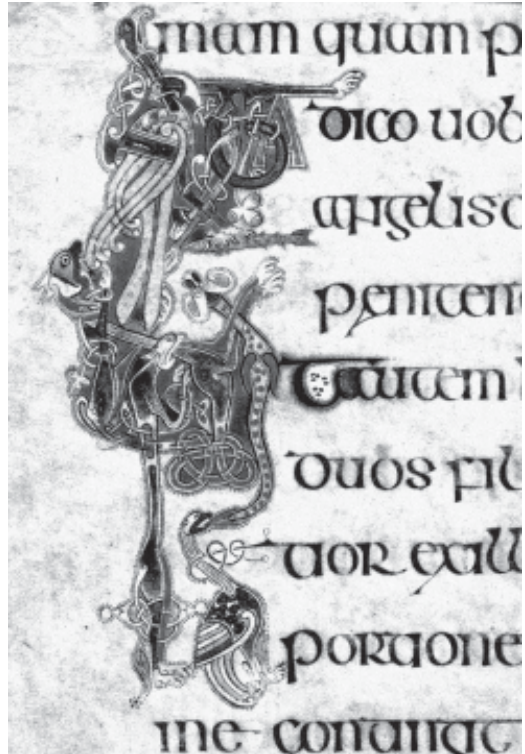 mam quam p
dico uob
angelis d
penitent
t autem
duos fili
tior exill
portione
me contingit